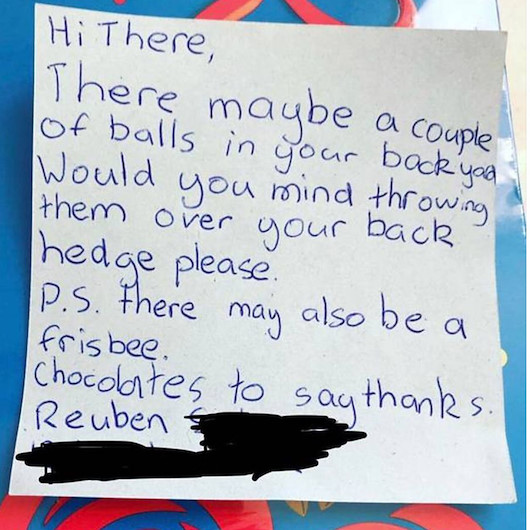 Hi There,
There maybe a couple
of balls in your back yad
Would you mind throwing
them over your back
hedge please.
P.S. there may also be a
frisbee.
Chocolates to say thanks.
Reuben